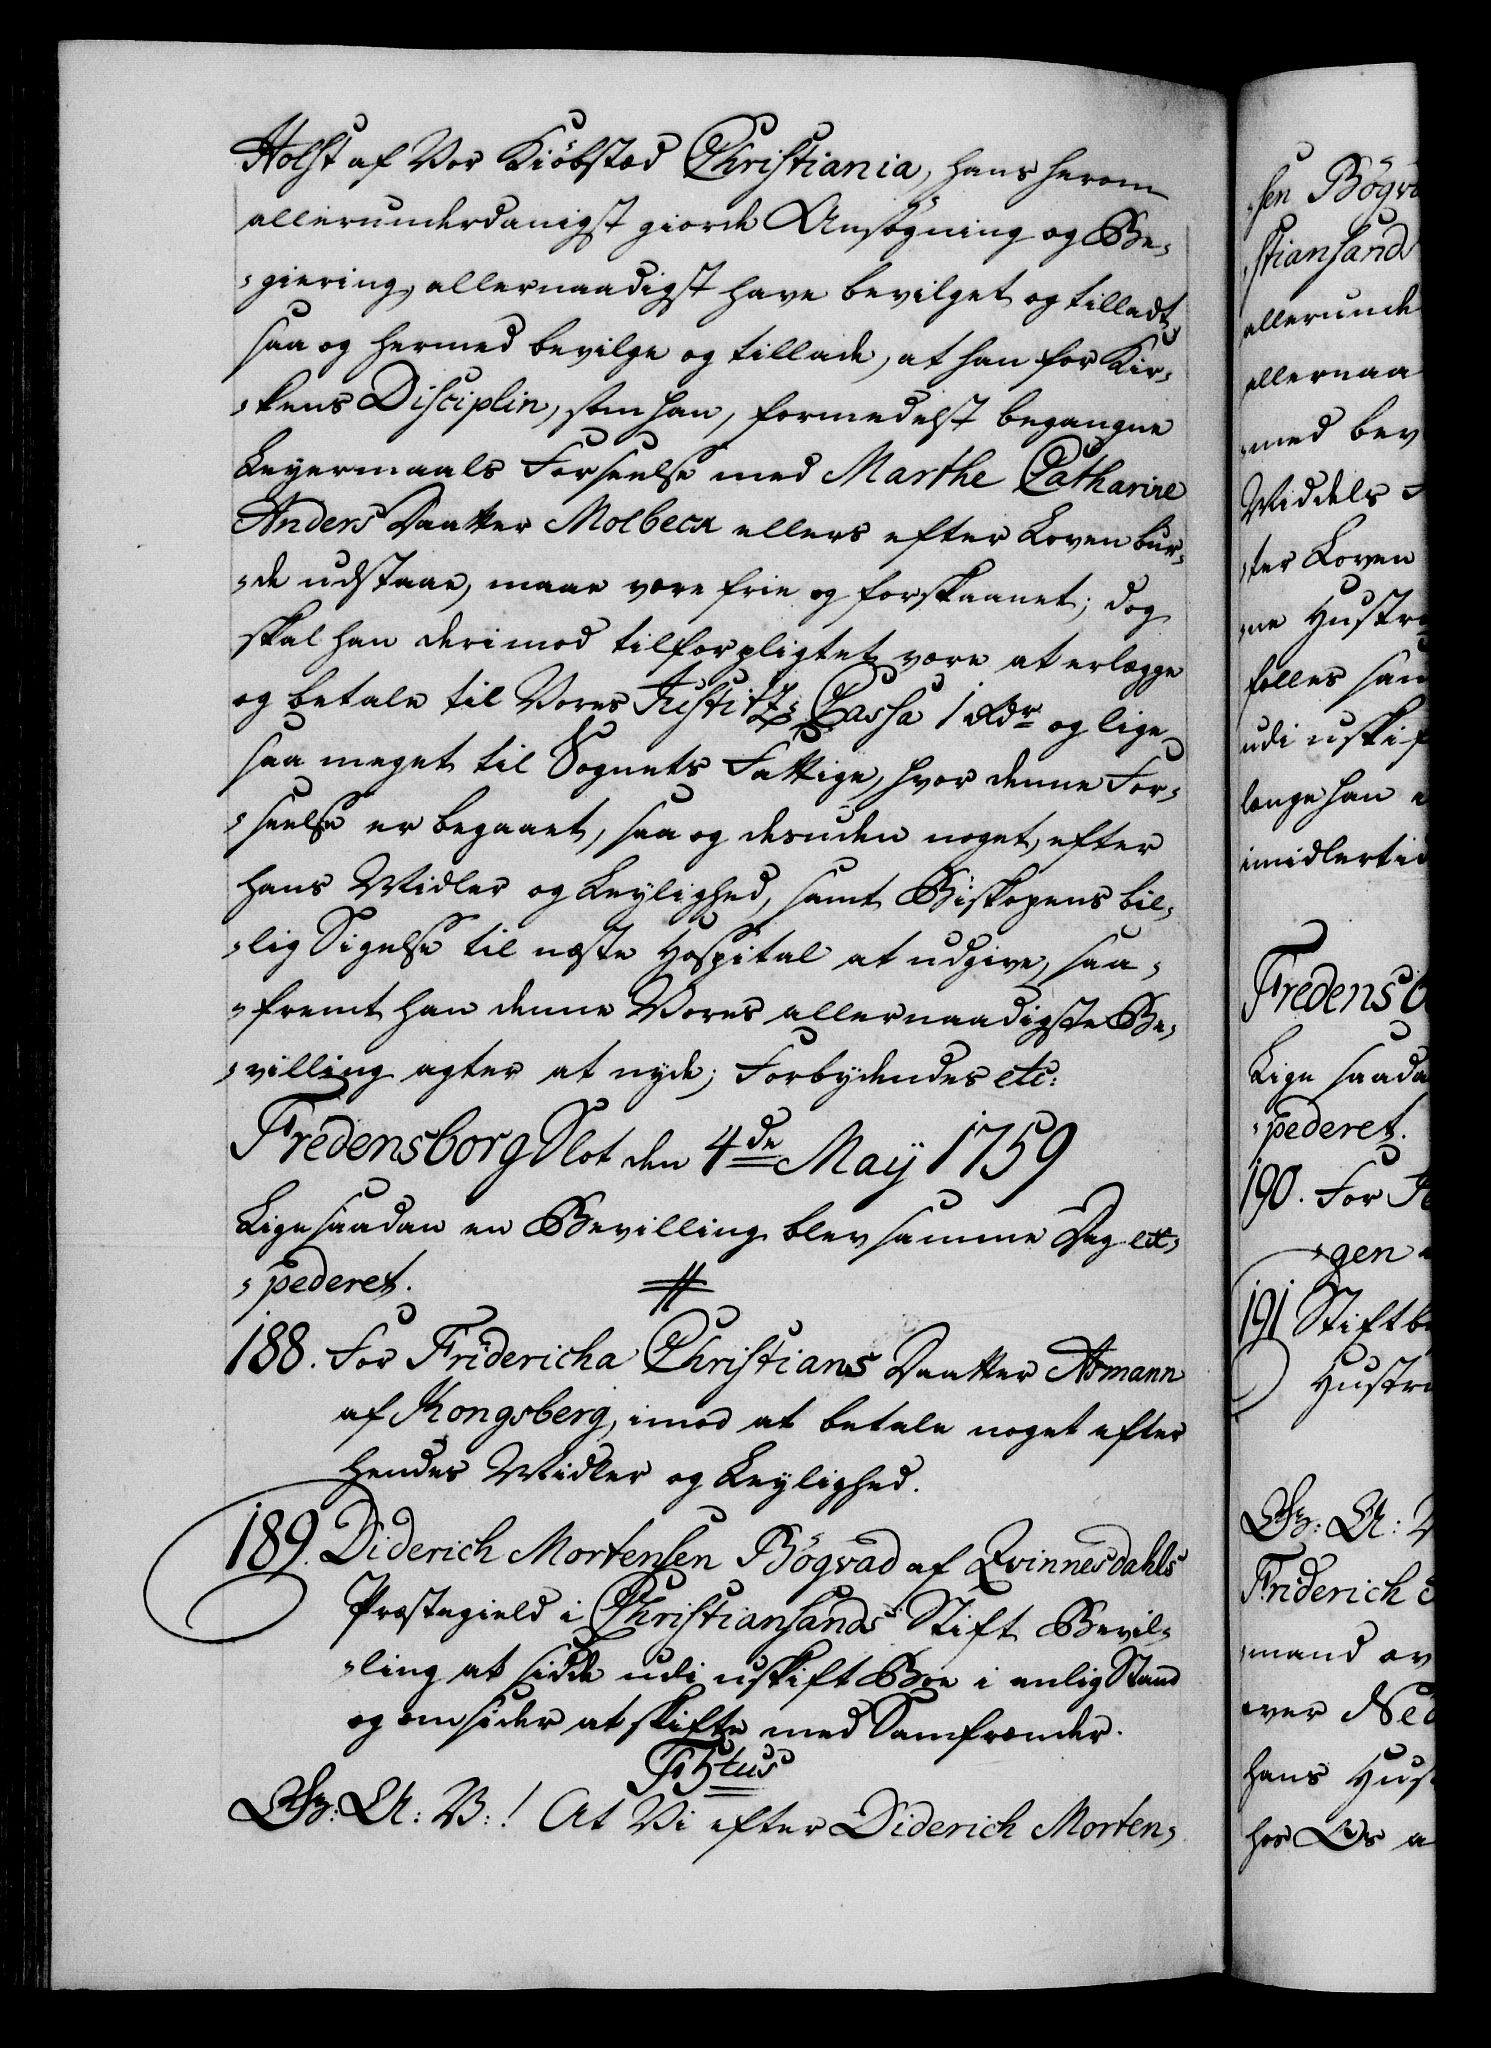 Holst af Vor Kiöbstæd Christiania, hans herom
allerunderdanigst giorde Ansögning og Be,
,giering, allernaadigst have bevilget og tilladt,
saa og hermed bevilge og tillade, at han for Kir,
,kens Disciplin, som han, formedelst begangne
Leyermaals Forseelse med Marthe Catharine
Anders Daatter Molbeck ellers efter Loven bur,
,de udstaae, maae være frie og forskaanet; dog
skal han derimod tilforpligtet være at erlægge
og betale til Vores Justitz-Cassa 1 Rdr og lige
saa meget til Sognets Fattige, hvor denne For,
,seelse er begaaet, saa og desuden noget, efter
hans Midler og Leylighed, samt Biskopens bil,
,lig Sigelse til næste Hospital at udgive, saa,
,fremt han denne Vores allernaadigste Be,
,villing agter at nyde; Forbydendes etc:
Fredensborg Slot den 4de Maÿ 1759
Lige saadan en Bevilling blev samme Dag ex,
,pederet.
188. For Fridericha Christians Daatter Asmann
af Kongsberg, imod at betale noget efter
hendes Midler og Leylighed.
189. Diderich Mortensen Bögvad af Qvinnesdahls
Præstegield i Christiansands Stift Bevil,
,ling at sidde udi uskift Boe i enlig Stand
og omsider at skifte med Samfrænder.
F 5tus
Gr: A: V: ! At Vi efter Diderich Morten,
,sen Bögva
,stiansands
allerunde
allernaa
,med bev
Middels
,ter Loven
,ne Hustru
falles sam
udi uskif
længe han e
imidlertid
Fredensb
Lige saada
,pederet.
190. For
,gen
191 Stiftb
Hustru
Gr: A: V
Friderich
,mand ov
over Ned
hans Hust
hos Os a